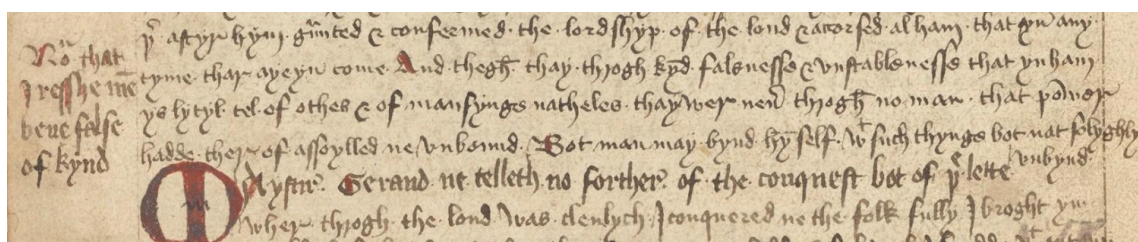 Nō that
Iresshe mē
bene false
of kynd
þͥ aftyr hym graunted & confermed· the lordshyp· of· the lond & acorsed· al ham· that yn any
tyme· thar ayeyn come· And thegh· thay· throgh kynd· falsnesse & vnstablenesse that yn ham
ys lytyl· tel· of othes & of mansynge natheles· thay wer neuer throgh no man· that power
hadde· ther of assoylled ne vnbound· Bot man may· bynd hym self· wt such thynge bot nat folyghly
vnbynd
Maystre· Gerand ne telleth no forther· of· the conquest bot of þͬ lette
wher throgh· the lond was clenlych· I conquered ne the folk fully· I broght yn